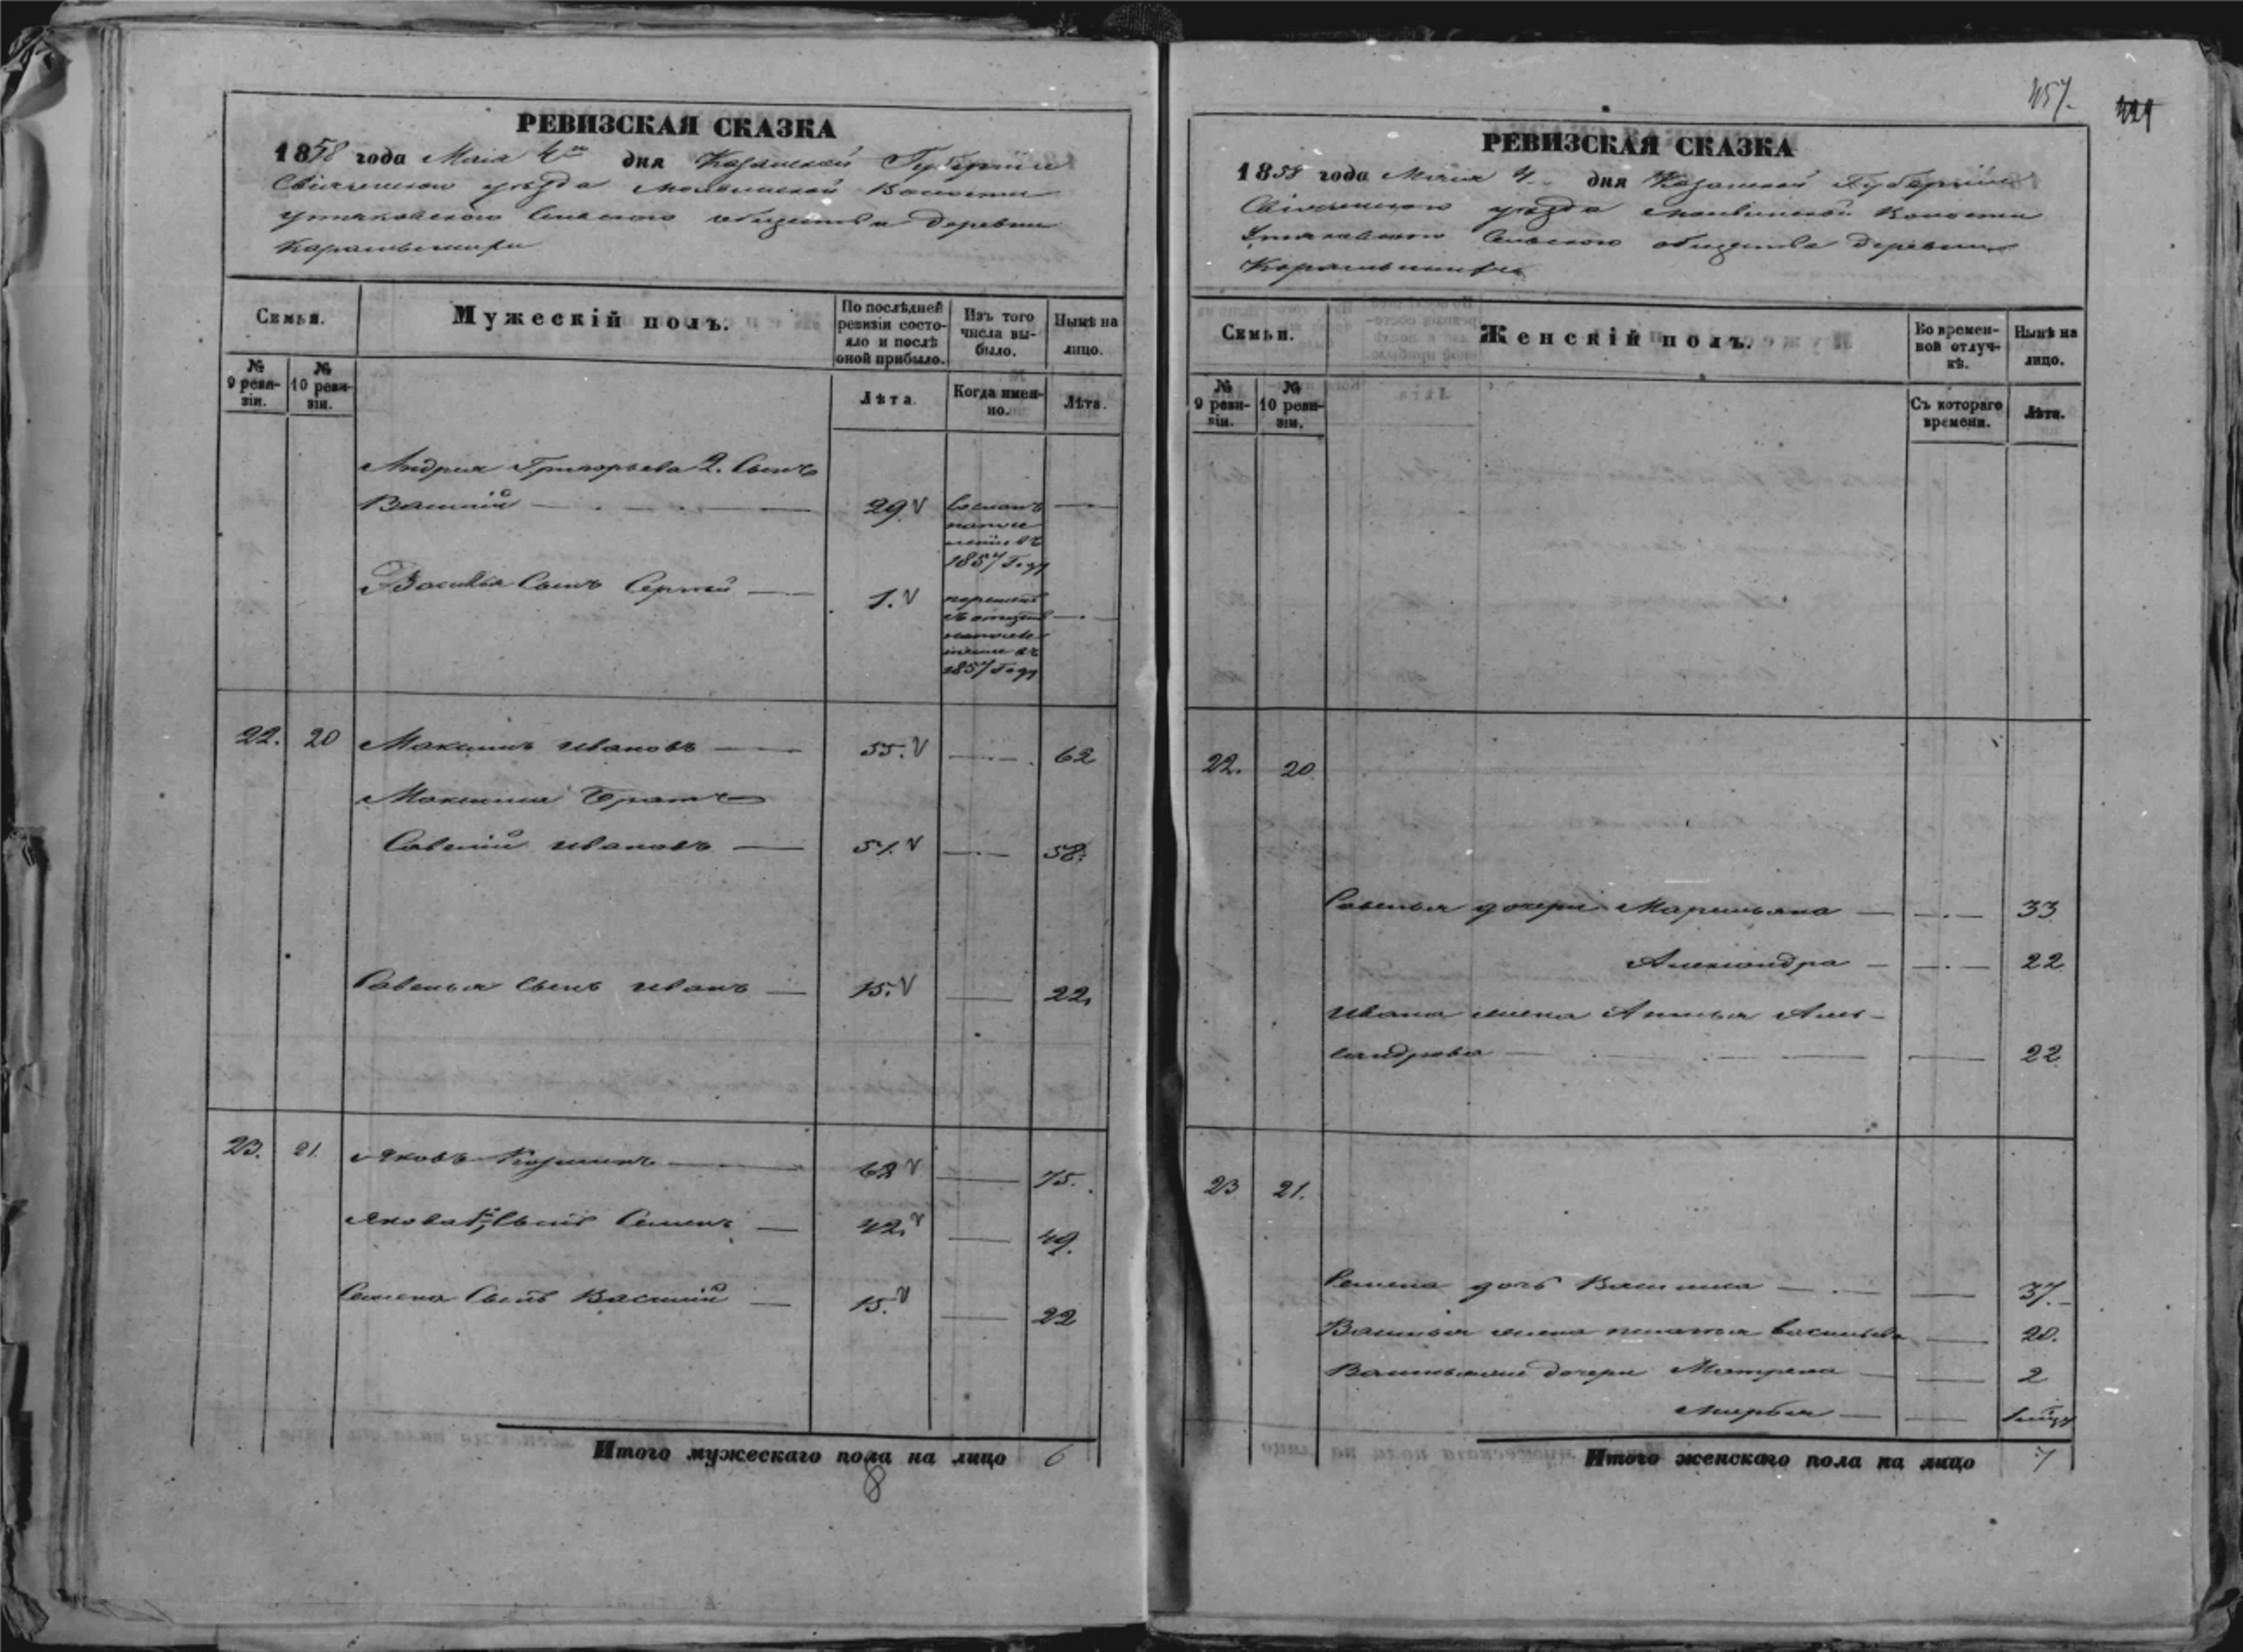 РЕВИЗСКАЯ СКАЗКА
1858 года Маія 4го дня Казанской Губерніи
Свіяжскаго уѣзда Молвинской Волости
Утяковскаго Сельскаго общества деревни
Семьи.
Мужескій полъ.
По послѣдней ревизіи состояло и послѣ оной прибыло.
Изъ того числа выбыло.
Нынѣ на лицо.
№ 9 ревизіи.
№ 10 ревизіи.
Лѣта
Когда именно.
Лѣта.
Андрея Григорьева 2. Сынъ
Василій 29
1857 Году
Василья Сынъ Сергей 1.
1857 Году
22. 20 Максимъ Ивановъ 55. 62
Максима Братъ
Савелій Ивановъ 51. 58.
Савелья Сынъ Иванъ 15. 22.
23. 21 Яковъ 68 75.
Якова Сынъ Семенъ 42. 49.
Семена Сынъ Василій 15. 22
Итого мужескаго пола на лицо 6
8
457.
РЕВИЗСКАЯ СКАЗКА
1858 года Маія 4 дня Казанской Губерніи
Свіяжскаго уѣзда Молвинской Волости
Утяковскаго Сельскаго общества деревни
Семьи.
Женскій полъ.
Во временной отлучкѣ.
Нынѣ на лицо.
№ 9 ревизіи.
№ 10 ревизіи.
Съ котораго времени.
Лѣта.
22. 20
Савелья дочери Маремьяна 33
Александра 22
Ивана жена Алек-
сандрова 22
23 21.
Семена дочь Василиса 37.
Василья жена Васильева 20.
Васильевы дочери Матрена 2
Марья
Итого женскаго пола на лицо 7